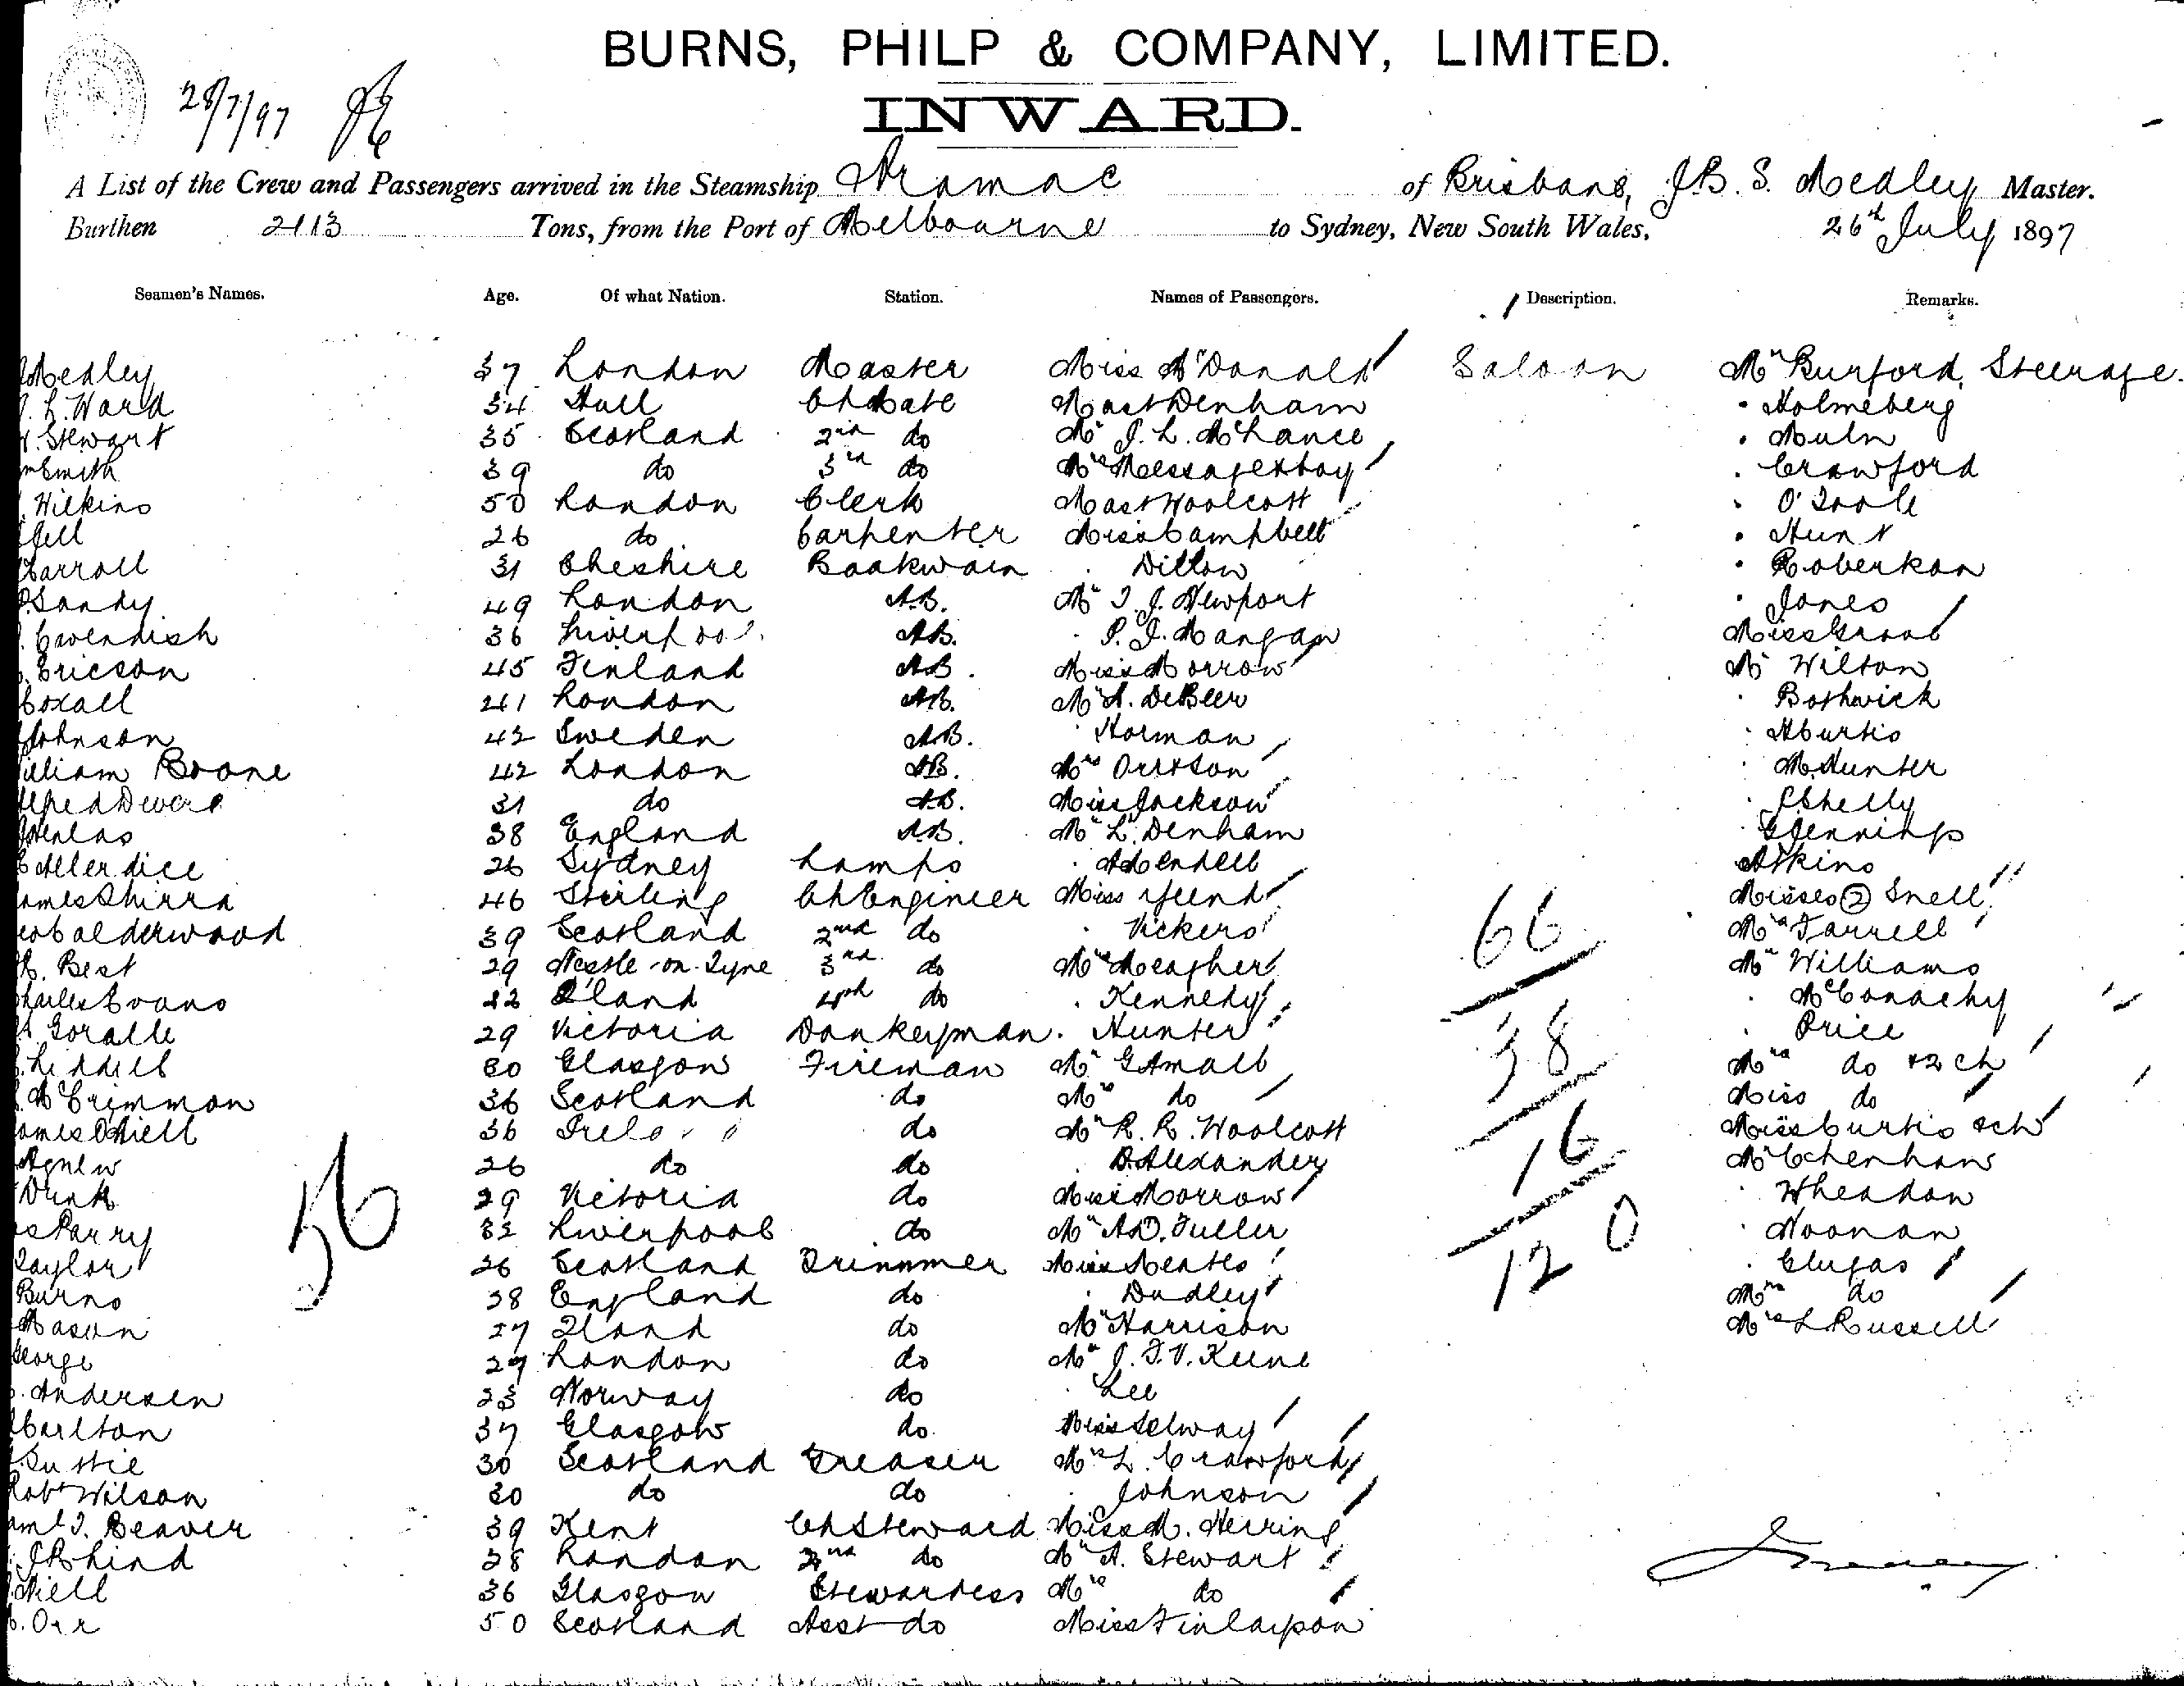 BURNS, PHILP & COMPANY, LIMITED.
28/7/97
INWARD.
A List of the Crew and Passengers arrived in the Steamship Aramac of Brisbane, J.B.S. Medley Master.
Burthen 2113 Tons, from the Port of Melbourne to Sydney, New South Wales, 26th July 1897
Seamen's Names. Age. Of what Nation. Station. Names of Passengers. Description. Remarks.
Medley 37 London Master Miss McDonald Saloon Mr Burford, Steerage.
Ward 34 Hull Ch Mate Mast Denham Holmeberg
Stewart 35 Scotland 2nd do Mr J. L. McLance
Smith 39 do 3rd do Mrs Crawford
Wilkins 50 London Clerk Mast Woolcott O'Toole
Jell 26 do Carpenter Miss Campbell Hunt
Carroll 31 Cheshire Boatswain Dillon Robertson
Sandy 49 London A.B. Mr T. J. Newport Jones
Cavendish 36 Liverpool A.B. P. J. Mangan Miss
Ericson 45 Finland AB. Miss Morrow Mr Wilton
Coxall 41 London AB. Mr A. DeBeer Bothwick
Johnson 42 Sweden A.B. Horman H Curtis
William Boone 42 London AB. Mrs Orttson M. Hunter
31 do A.B. Miss Jackson Shelly
38 England A.B. Mr L. Denham G Jennings
Allerdice 26 Sydney Lamps Atkins
James Shirra 46 Stirling Ch Engineer Miss 66 Misses (2) Snell
Calderwood 39 Scotland 2nd do Vickers Mrs Farrell
Best 29 Ncastle-on-Tyne 3rd do Mrs Meagher Mr Williams
Charles Evans 22 4th do Kennedy McConachy
29 Victoria Donkeyman Hunter Price
Liddell 30 Glasgow Fireman Mr G Small 38 Mrs do & 2 ch
McCrimmon 36 Scotland do Mrs do Miss do
James O'Niell 36 Ireland do Mr R. R. Woolcott 16 Miss Curtis & ch
Agnew 26 do do D. Alexander Mr Chenham
29 Victoria do Miss Morrow Wheadon
Parry 32 Liverpool do Mr A.D. Fuller 0 Noonan
56
Taylor 26 Scotland Trimmer Miss Meates 12 Clugas
Burns 38 England do Dudley Mrs do
Mason 27 do Mr Harrison Mrs L Russell
George 29 London do Mr J. T. V. Keene
Andersen 23 Norway do Lee
Carlton 37 Glasgow do. Miss Selway
30 Scotland Greaser Mrs L. Crawford
Robt Wilson 30 do do Johnson
Saml J. Beaver 39 Kent Ch Steward Miss M. Herring
28 London 2nd do Mr A. Stewart
Niell 36 Glasgow Stewardess Mrs do
Orr 50 Scotland Asst do Miss Finlayson